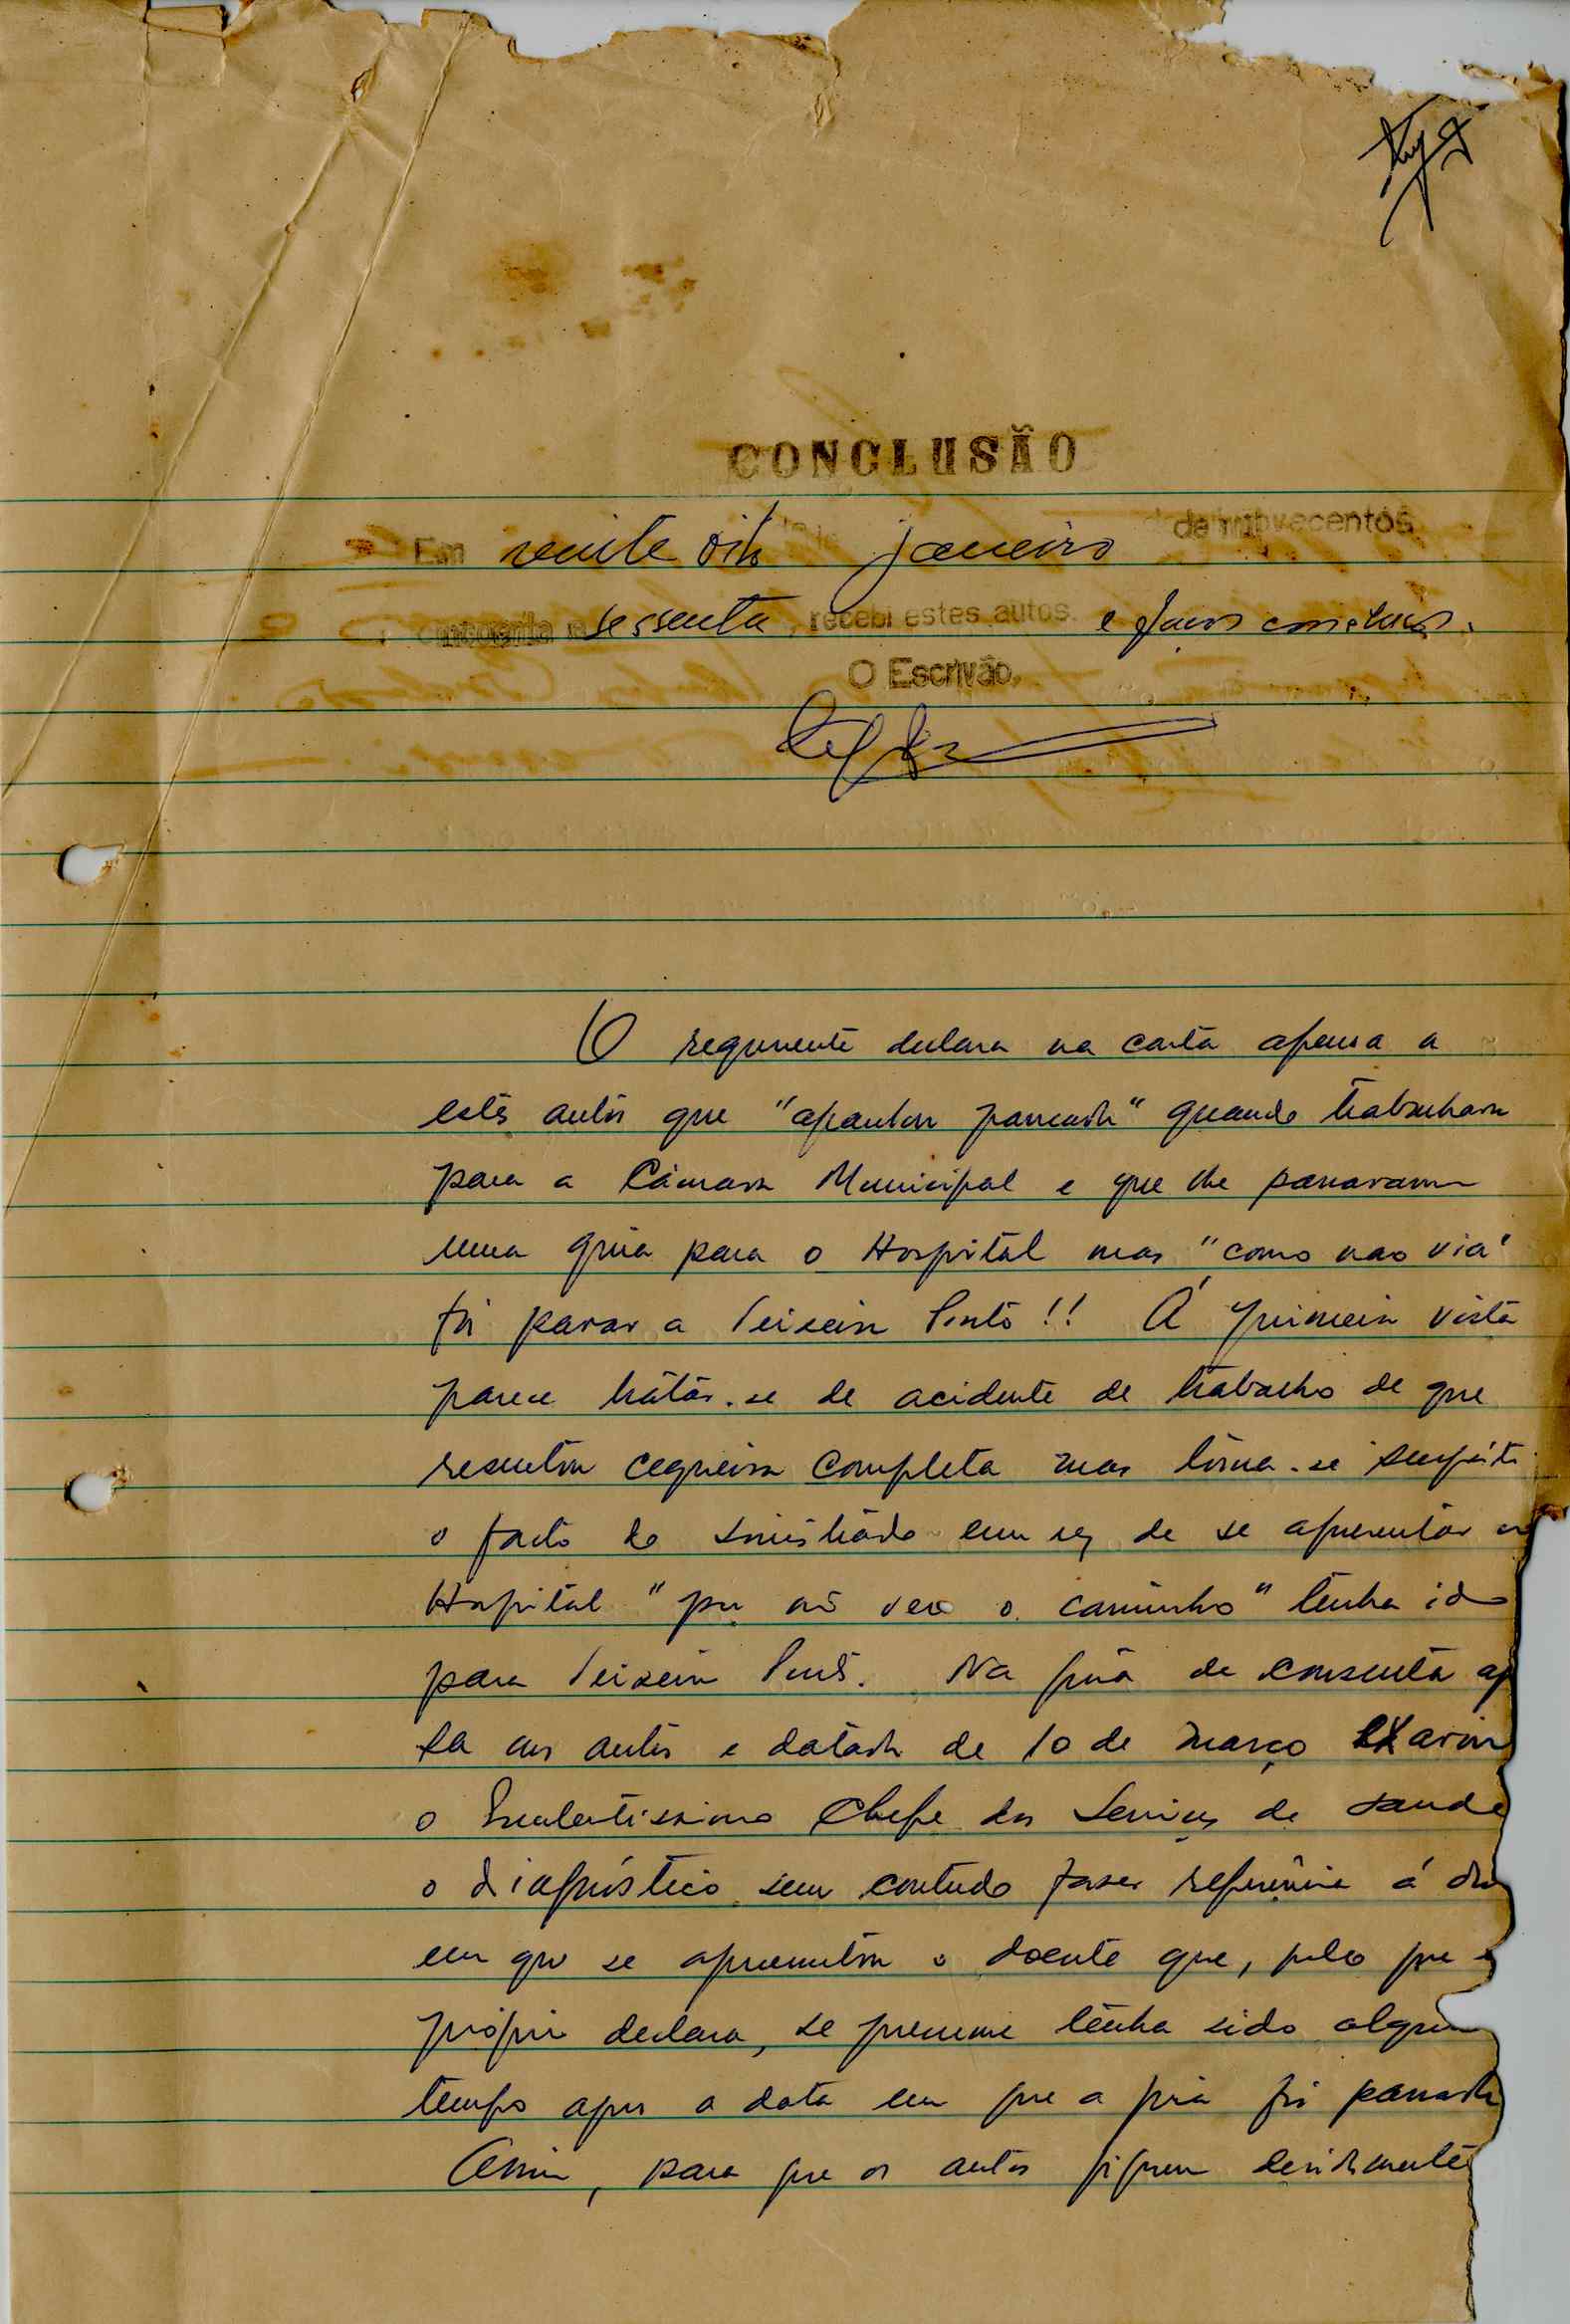 CONCLUSÃO
Em vinte oito janeiro de mil novecentos
cincoenta e sessenta, recebi estes autos e faço conclusos.
O Escrivão,
O requerente declara na carta apensa a
estes autos que "apanhou pancada" quando trabalhava
para a Câmara Municipal e que lhe passaram
uma guia para o Hospital mas "como não via"
foi parar a Teixeira Pinto!! Á primeira vista
parece tratar-se de acidente de trabalho de que
resultou cegueira completa mas torna-se suspeito
o facto do sinistrado em vez de se apresentar no
Hospital "por não ver o caminho" tenha ido
para Teixeira Pinto. Na guia de consulta ap
sa aos autos e datada de 10 de março exarou
o Excelentissimo Chefe dos Serviços de saude
o diagnóstico sem contudo fazer referência á da
em que se apresentou o doente que, pelo que o
próprio declara, se presume tenha sido algum
tempo apos a data em que a guia foi passada
Assim, para que os autos fiquem devidamente